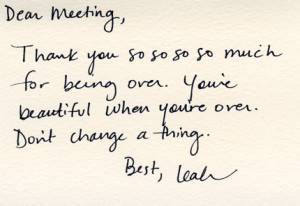 Dear Meeting,
Thank you so so so so much
for being over. You're
beautiful when you're over.
Don't change a thing.
Best, Leah